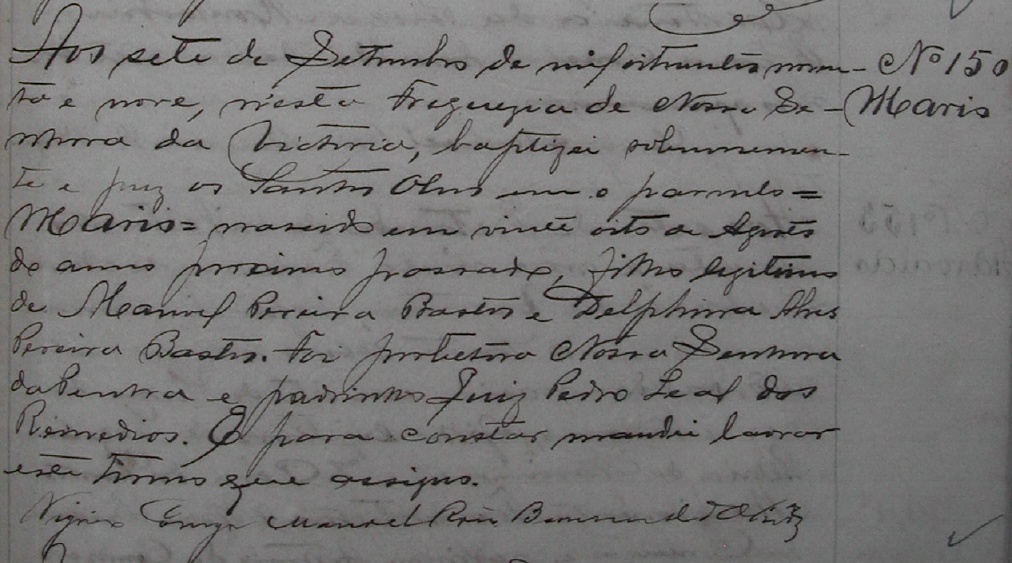 Aos sete de Setembro de mil oitocentos noven- Nº 150
ta e nove, nesta Freguezia de Nossa Se- Mario
nhora da Victoria, baptizei solemnemen-
te e puz os Santos Oleos em o parvulo =
Mario = nascido em vinte oito de Agosto
do anno proximo passado, filho legitimo
de Manoel Pereira Bastos e Delphina Alves
Pereira Bastos. Foi protectora Nossa Senhora
da Penha e padrinho Luiz Pedro Leal dos
Remedios. E para constar mandei lavrar
este termo que assigno.
Vigrio Manoel